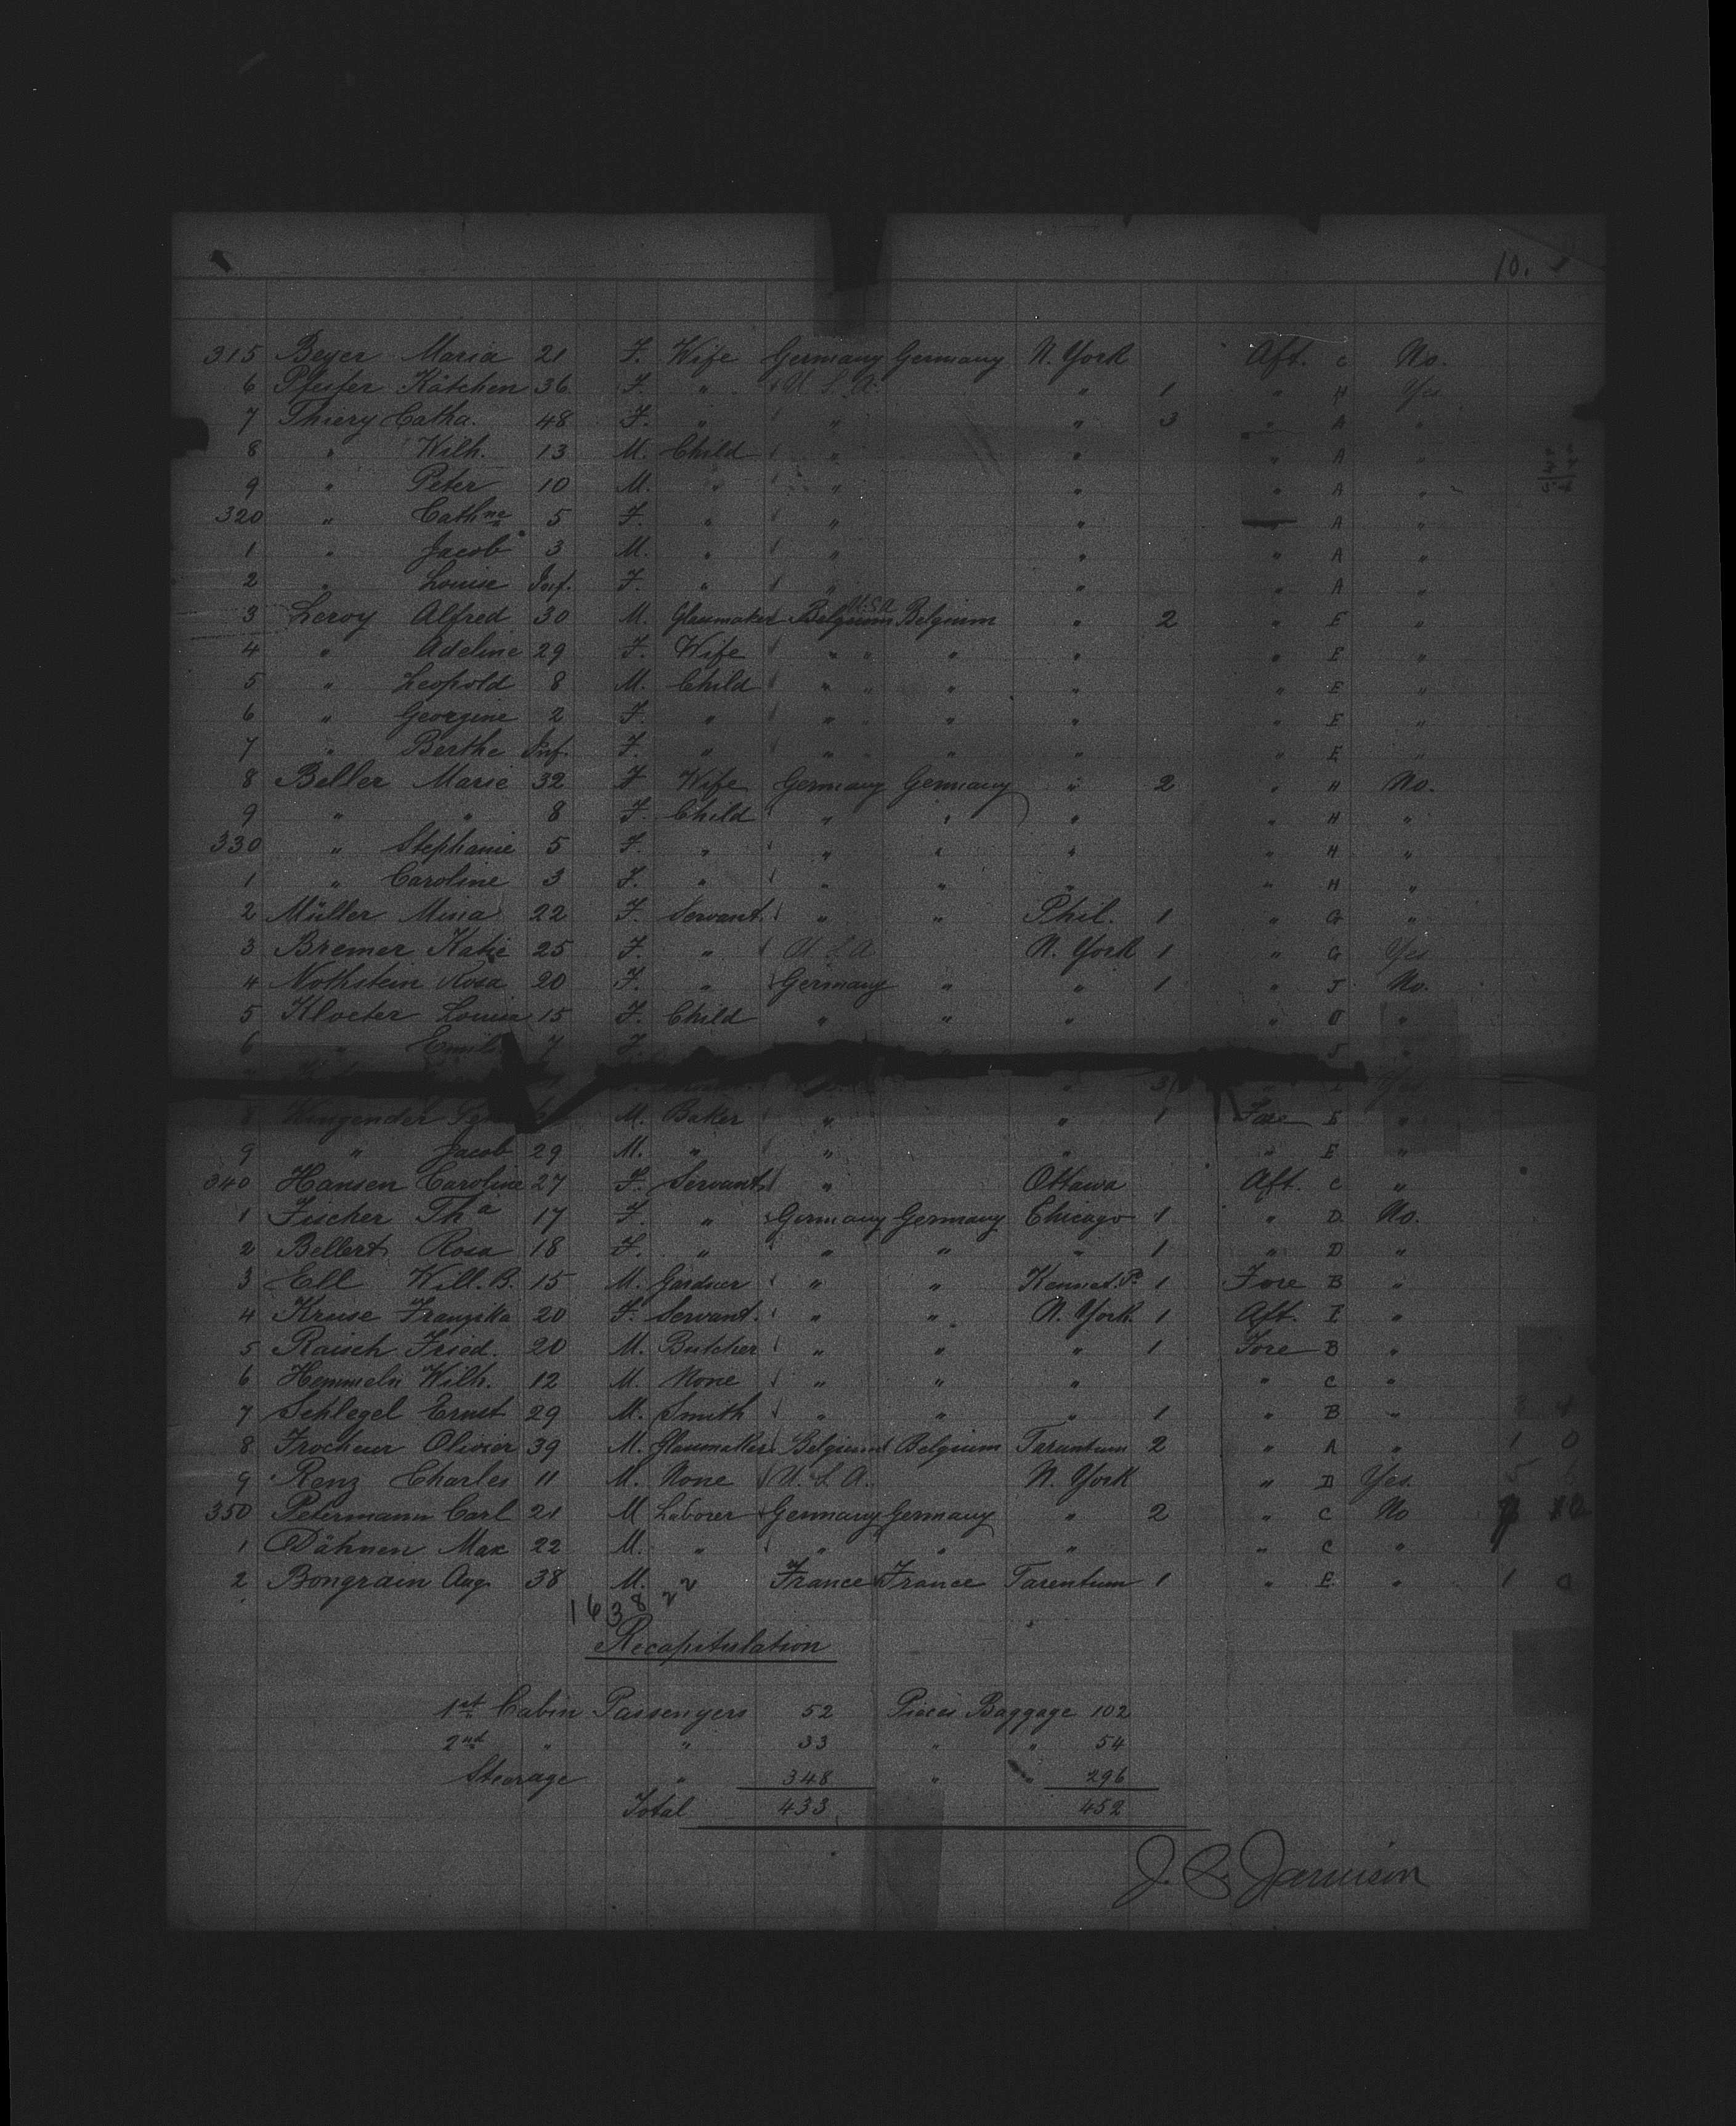 10.
315 Beyer Maria 21 F. Wife Germany Germany N. York Aft. C No.
6 Pfeifer Kätchen 36 F. " U. S. A. " 1 " H Yes
7 Thiery Catha. 48 F. " " " 3 " A "
8 " Wilh. 13 M. Child " " " A "
9 " Peter 10 M. " " " " A "
320 " Cathne 5 F. " " " A "
1 " Jacob 3 M. " " " " A "
2 " Louise Inf. F. " " " " A "
3 Leroy Alfred 30 M. Glassmaker Belgium U.S.A Belgium " 2 " E "
4 " Adeline 29 F. Wife " " " " " E "
5 " Leopold 8 M. Child " " " " " E "
6 " Georgine 2 F. " " " " " E "
7 " Berthe Inf. F. " " " " " E "
8 Beller Marie 32 F Wife Germany Germany " 2 " H No.
9 " " 8 F. Child " " " " H "
330 " Stephanie 5 F. " " " " " H "
1 " Caroline 3 F. " " " " " H "
2 Müller Mina 22 F. Servant " " Phil. 1 " G "
3 Bremer Katie 25 F. " U. S. A N. York 1 " G Yes
4 Nothstein Rosa 20 F. " Germany " " 1 " J No.
5 Kloeter Louisa 15 F. Child " " " " J "
6 " Emil 7
" 3 Yes
8 Klingender M. Baker " " 1 Fore E "
9 " Jacob 29 M. " " " " E "
340 Hansen Caroline 27 F. Servant " Ottawa Aft. C "
1 Fischer Tha 17 F. " Germany Germany Chicago 1 " D. No.
2 Bellert Rosa 18 F. " " " " 1 " D "
3 Ell Will. B. 15 M. Gardner " " Kennet. P. 1 Fore B "
4 Kruse Franzika 20 F. Servant. " " N. York. 1 Aft. E "
5 Raisch Fried. 20 M. Butcher " " " 1 Fore B "
6 Hemmeln Wilh. 12 M. None " " " " C "
7 Schlegel Ernst 29 M. Smith " " " 1 " B "
8 Frocheur Olivier 39 M. Glassmaker Belgium Belgium Tarantum 2 " A " 1 0
9 Renz Charles 11 M. None U. S. A. N. York " D Yes. 5
350 Petermann Carl 21 M Laborer Germany Germany " 2 " C No
1 Dähnen Max 22 M. " " " " " C "
2 Bongrain Aug. 38 M. " France France Tarentum 1 " E " 1 0
1638 22
Recapitulation
1st Cabin Passengers 52 Pieces Baggage 102
2nd " " 33 " " 54
Steerage " 348 " " 296
Total 433 452